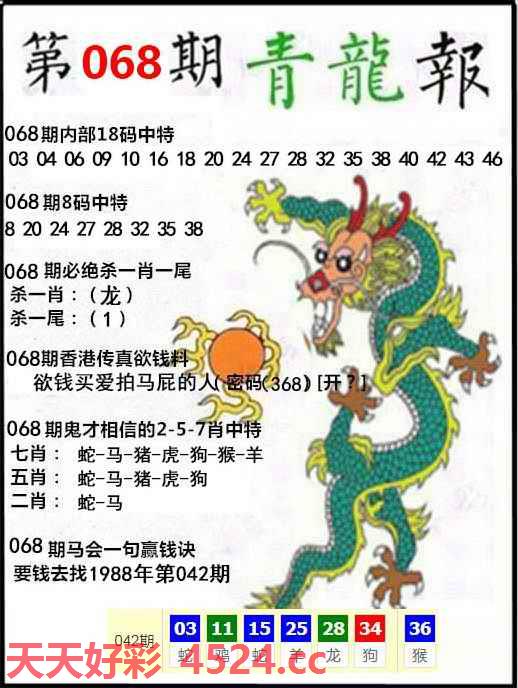 第068期青龍報
068期内部18码中特
03 04 06 09 10 16 18 20 24 27 28 32 35 38 40 42 43 46
068期8码中特
8 20 24 27 28 32 35 38
068期必绝杀一肖一尾
杀一肖：（龙）
杀一尾：（1）
068期香港传真欲钱料
欲钱买爱拍马屁的人(密码(368)[开？]
068期鬼才相信的2-5-7肖中特
七肖： 蛇-马-猪-虎-狗-猴-羊
五肖： 蛇-马-猪-虎-狗
二肖： 蛇-马
068期马会一句赢钱诀
要钱去找1988年第042期
042期 03 11 15 25 28 34 36
蛇 鸡 蛇 羊 龙 狗 猴
天天好彩 4524.cc